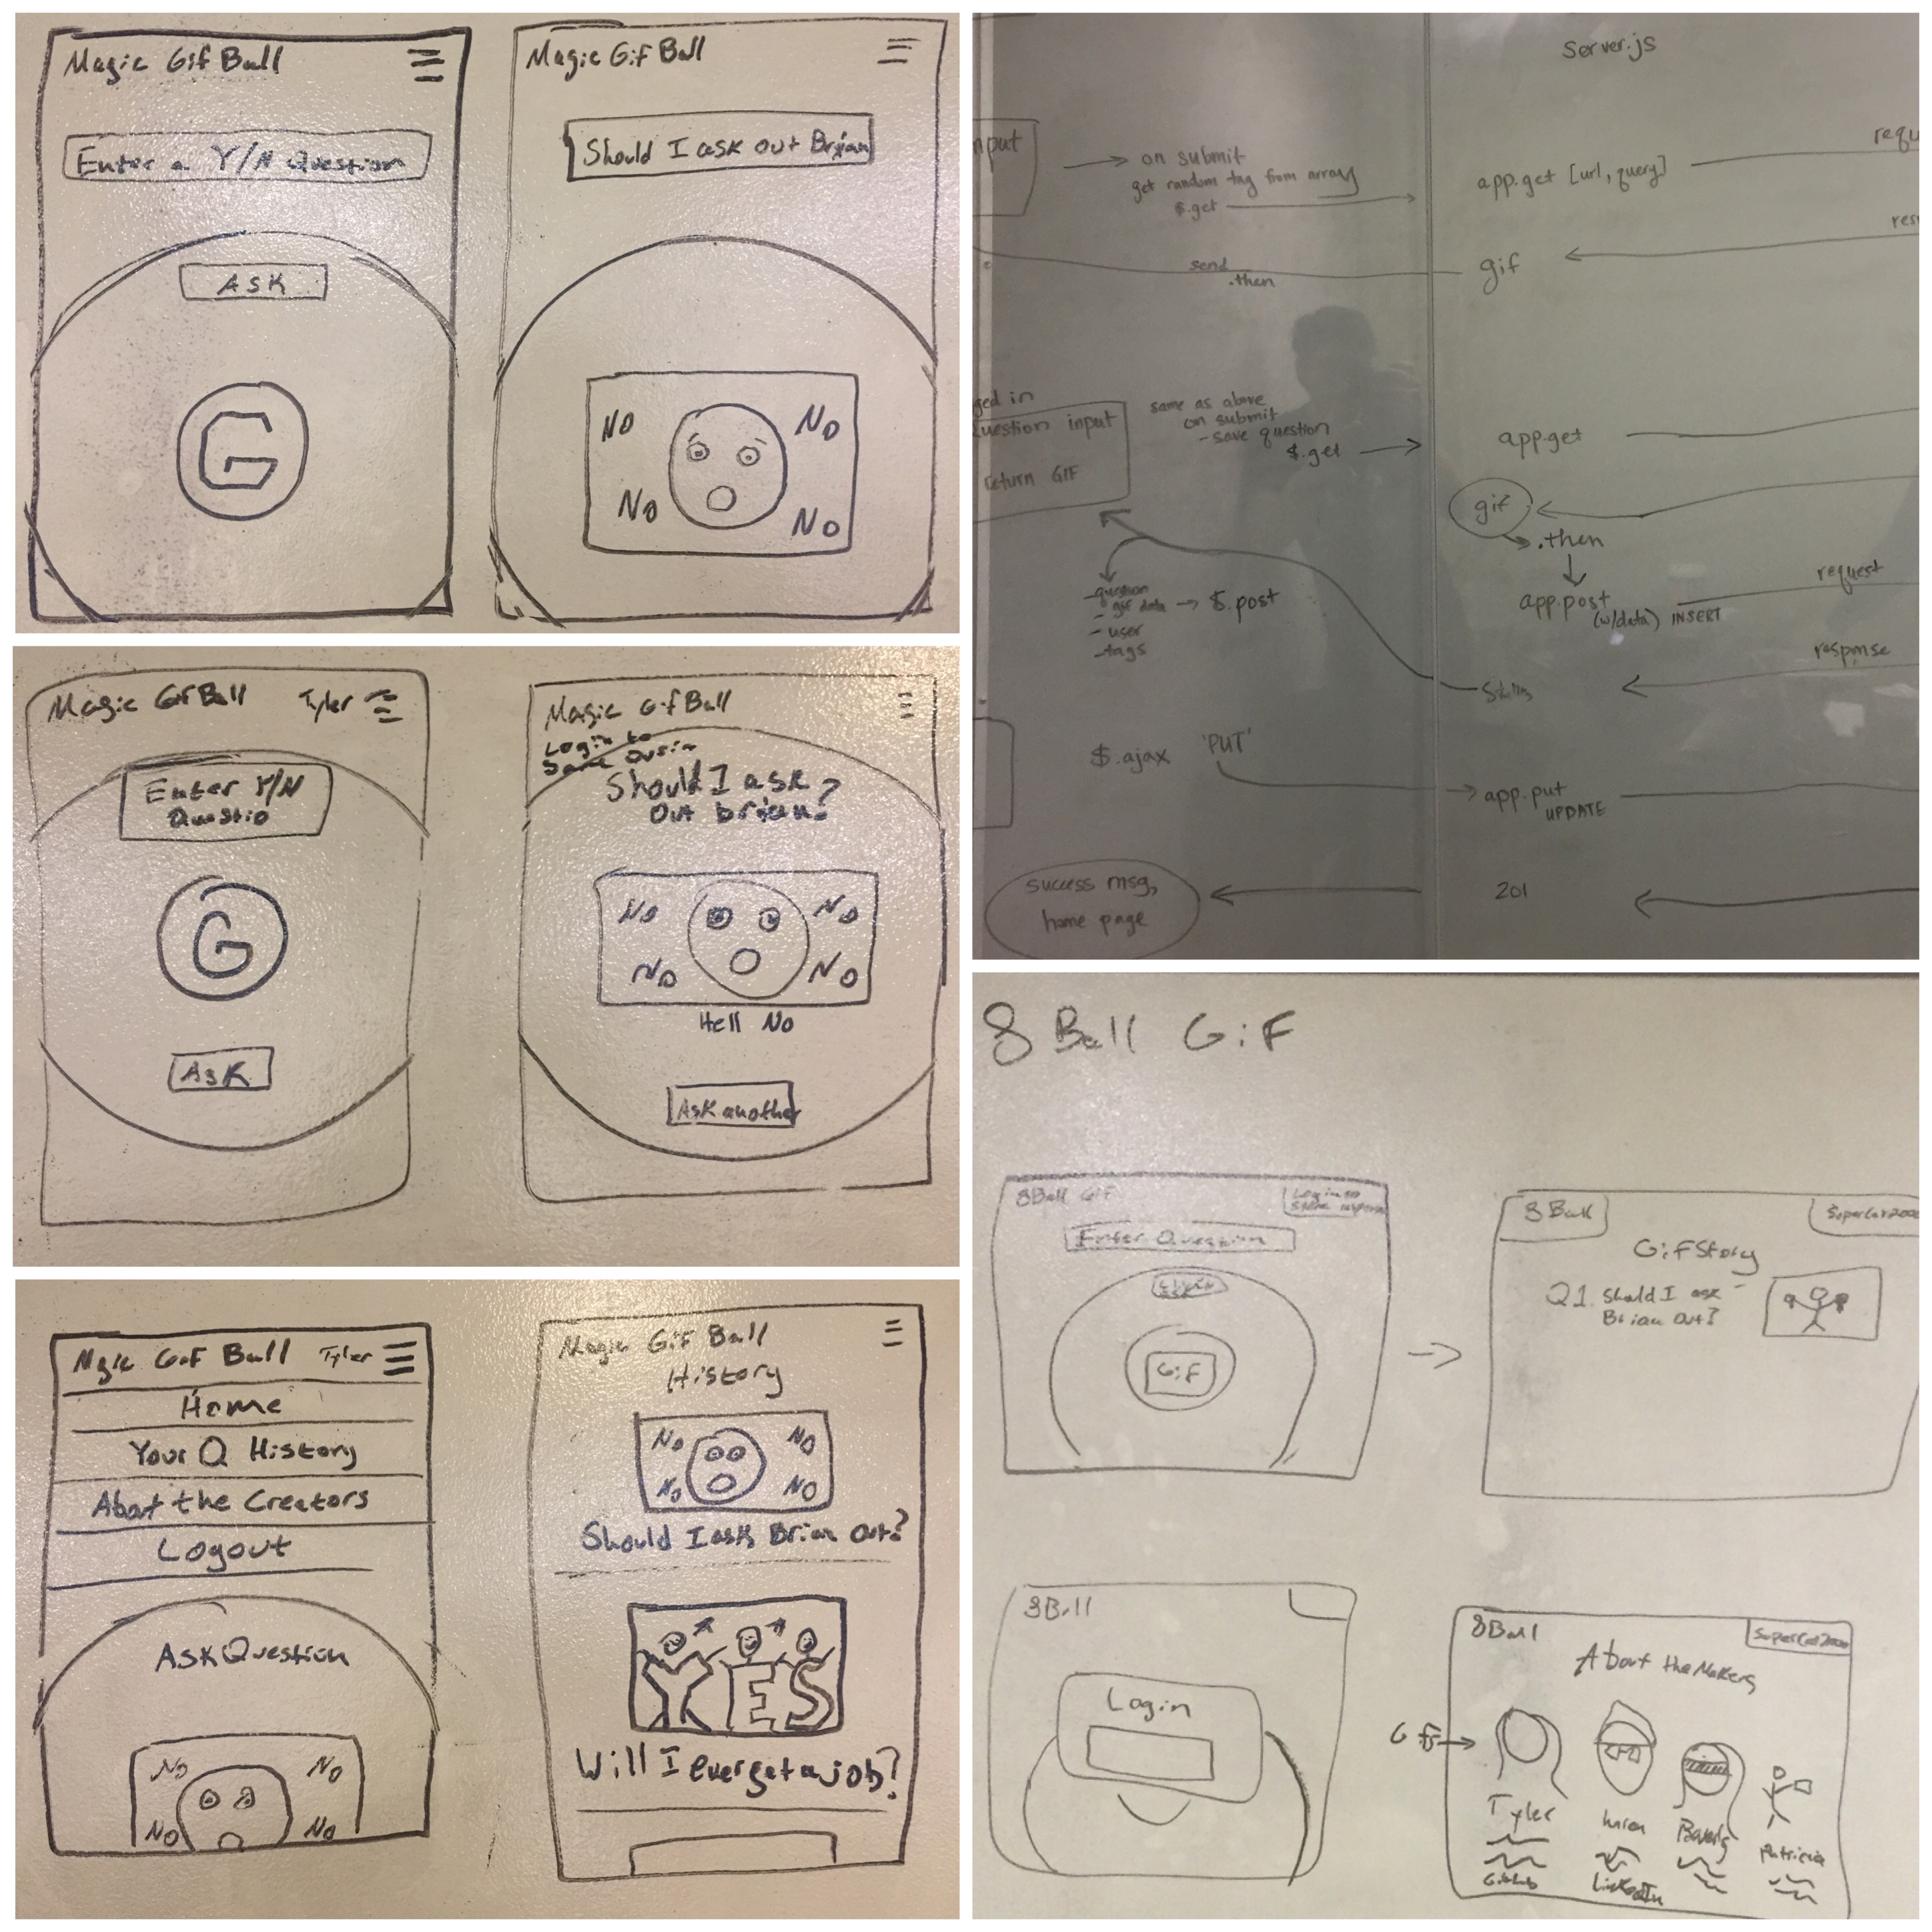 Magic Gif Ball
Enter a Y/N Question
ASK
G
Magic Gif Ball
Should I ask out Brian
NO
NO
NO
NO
Magic Gif Ball Tyler
Enter Y/N
Questio
G
ASK
Magic Gif Ball
Login to
Should I ask
out brian?
NO
NO
NO
NO
Hell No
Ask another
Mgic Gif Ball Tyler
Home
Your Q History
About the Creators
Logout
Ask Question
NO
NO
NO
NO
Magic Gif Ball
History
NO
NO
NO
NO
Should I ask Brian Out?
YES
Will I ever get a job?
Server.js
nput
on submit
get random tag from array
$.get
app.get [url, query]
requ
res
send
.then
gif
ged in
uestion input
return GIF
same as above
on submit
- save question
$.get
app.get
gif
.then
app.post
(w/data) INSERT
request
- question
- gif data
- user
- tags
$.post
response
$.ajax 'PUT'
app.put
UPDATE
success msg,
home page
201
8 Ball Gif
8Ball Gif
Login to
Enter Question
Gif
8 Ball
SuperCat2000
GifStory
Q1. Should I ask
Brian Out?
8Ball
Login
8Ball
SuperCat2000
About the Makers
Gif
Tyler
Patricia
Github
LinkedIn